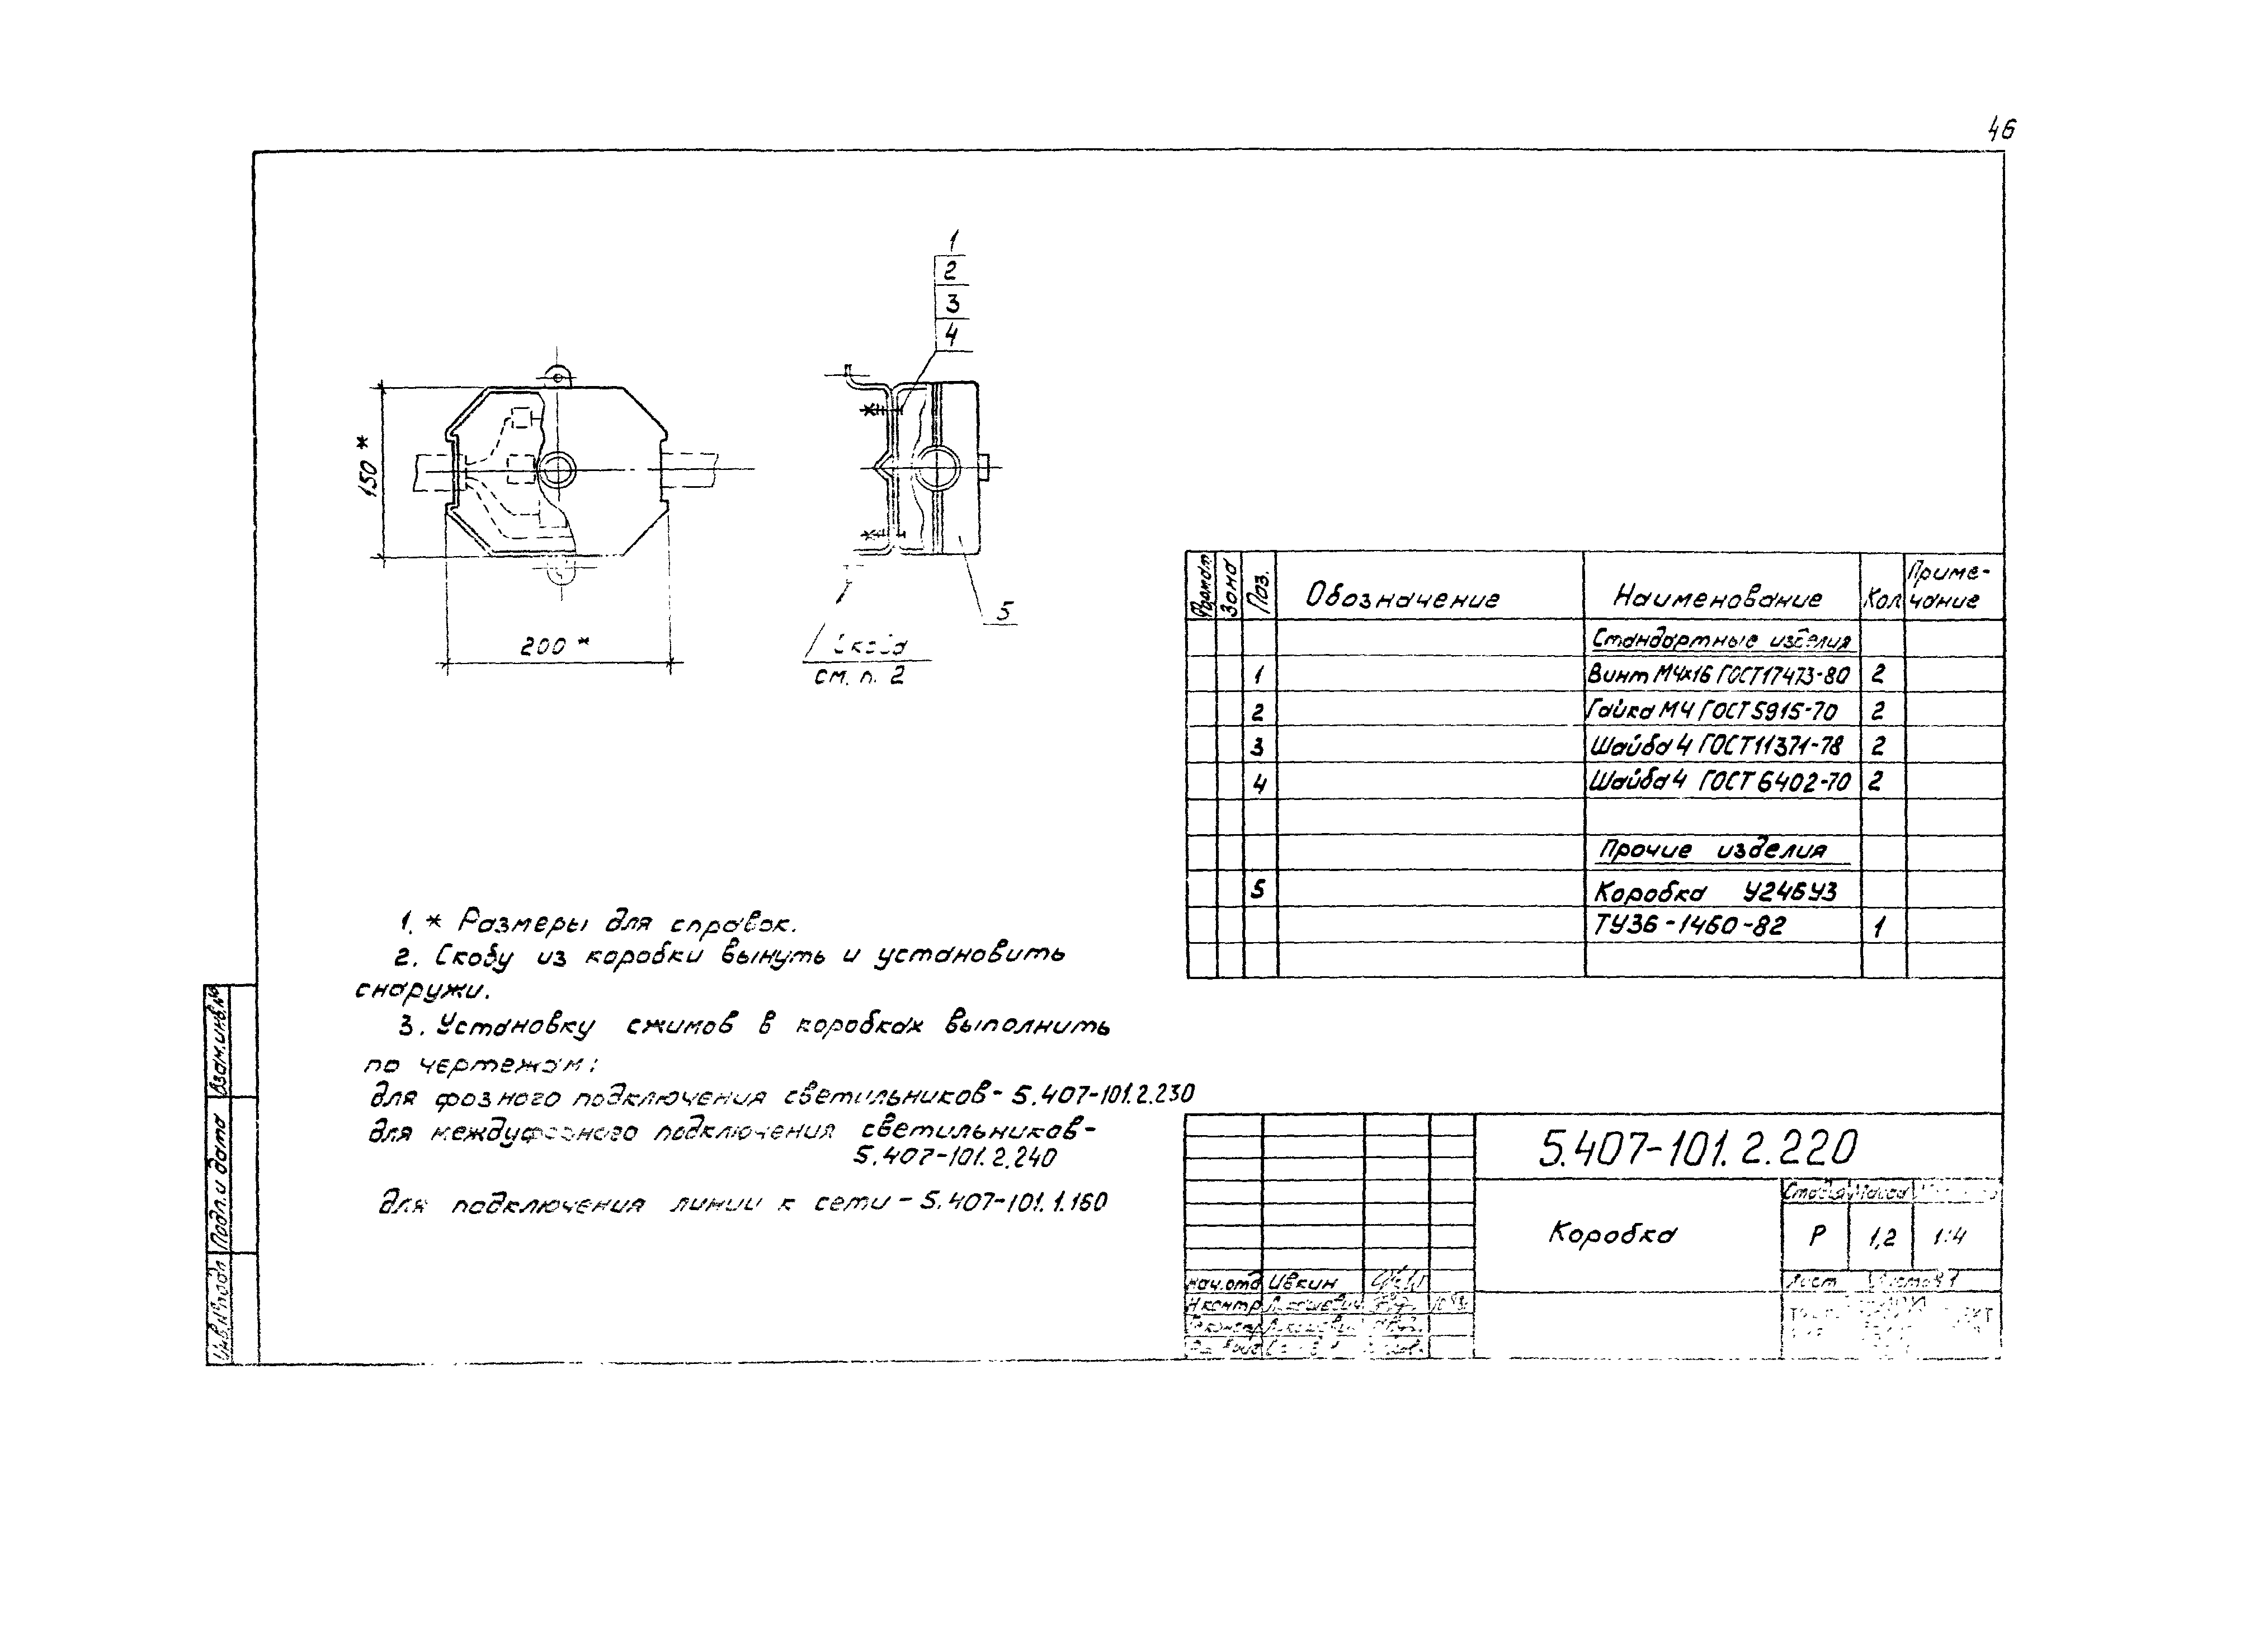 46
1
2
3
4
150 *
200 *
5
Скоба
см. п. 2
Формат Зона Поз. Обозначение Наименование Кол Приме-
чание
Стандартные изделия
1 Винт М4х16 ГОСТ17473-80 2
2 Гайка М4 ГОСТ5915-70 2
3 Шайба 4 ГОСТ11371-78 2
4 Шайба 4 ГОСТ 6402-70 2
Прочие изделия
5 Коробка У246У3
ТУ36-1460-82 1
1. * Размеры для справок.
2. Скобу из коробки вынуть и установить
снаружи.
3. Установку сжимов в коробках выполнить
по чертежам:
для фазного подключения светильников- 5.407-101.2.230
для междуфазного подключения светильников-
5.407-101.2.240
для подключения линии к сети - 5.407-101.1.160
Взам.инв.№
Подп.и дата
Инв.№подл
5.407-101.2.220
Коробка
Стадия Масса
Р 1,2 1:4
Лист Листов 1
Нач.отд Ивкин
Н контр